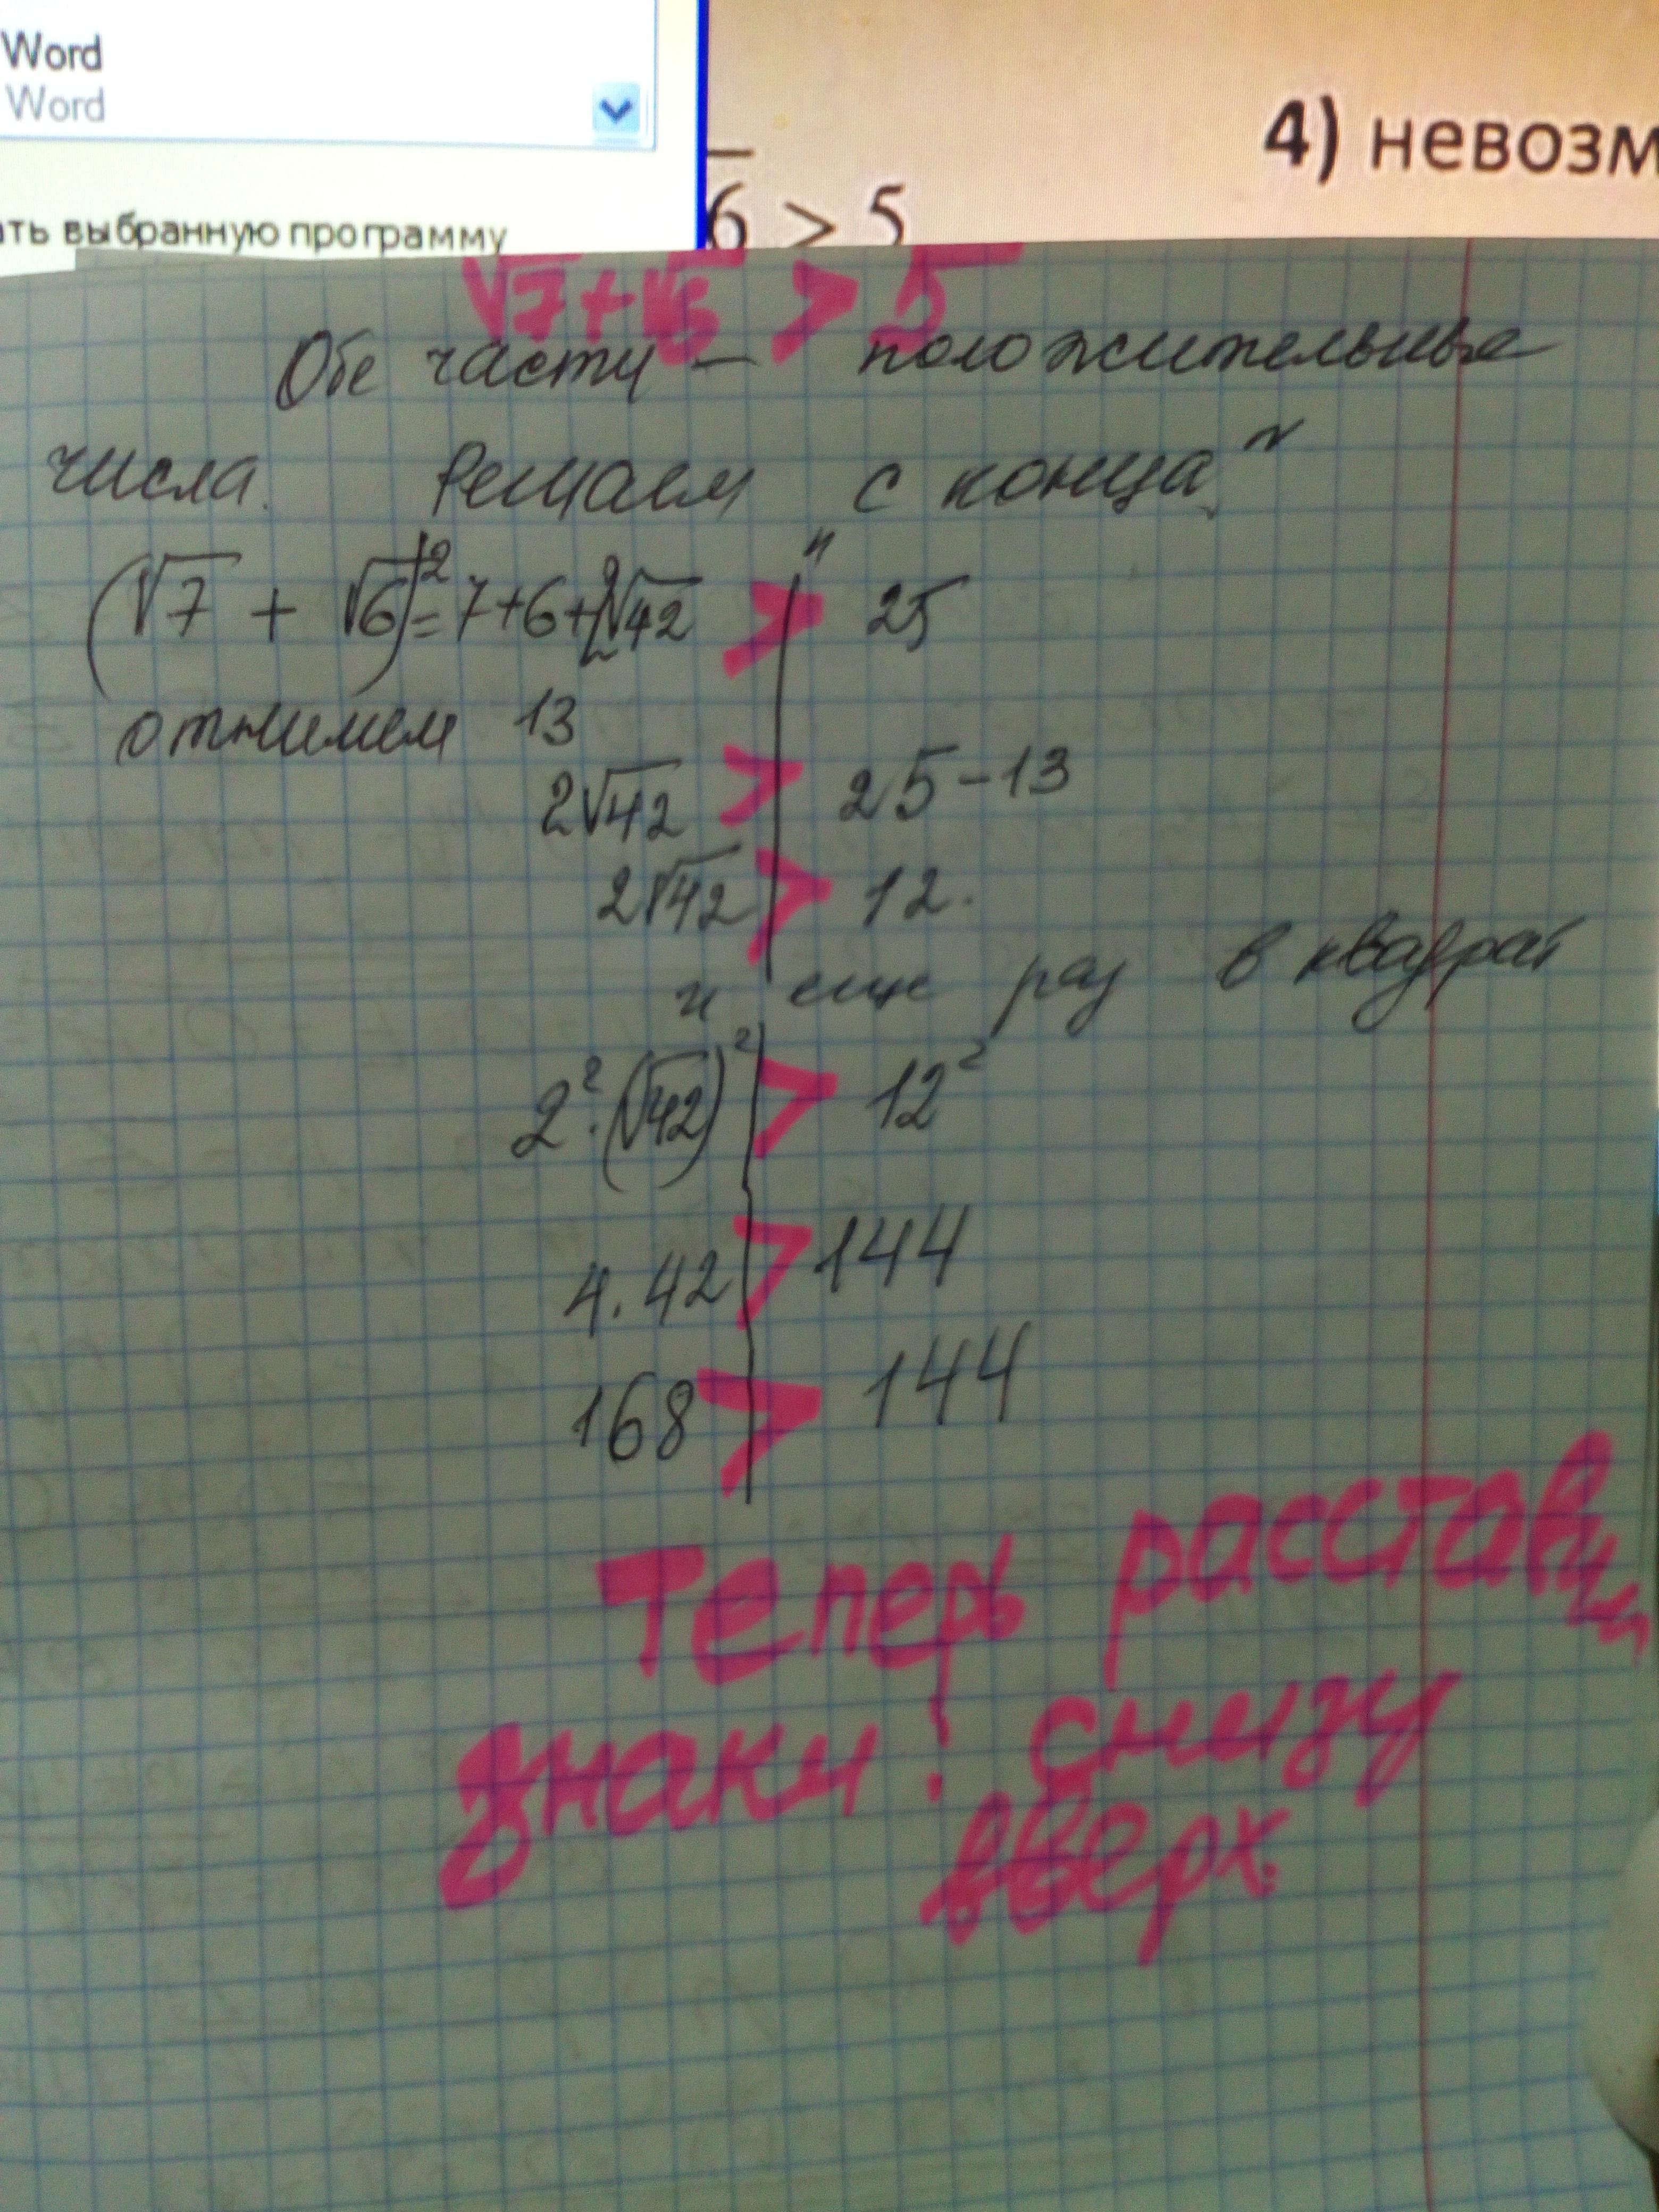 Word
Word
4) невозм
ать выбранную программу
6 > 5
√7+√6 > 5
Обе части — положительные
числа. Решаем с конца
(√7 + √6)²=7+6+2√42 > 25
отнимем 13
2√42 > 25-13
2√42 > 12.
и еще раз в квадрат
2²·(√42)² > 12²
4·42 > 144
168 > 144
Теперь расставим
знаки! снизу
вверх.